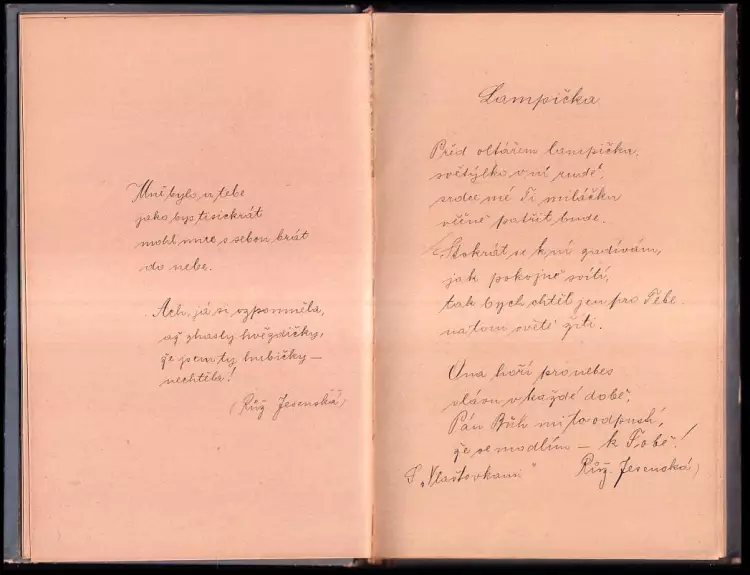 Mně bylo, u tebe
jako bys tisíckrát
mohl mne s sebou brát
do nebe.
Ach, já si vzpomněla,
až zhasly hvězdičky,
že jsem ty hubičky —
nechtěla!
(Růž Jesenská)
Lampička
Před oltářem lampička,
světýlko v ní rudé,
srdce mé Ti miláčku
věčně patřit bude.
Stokrát se k ní zadívám,
jak pokojně svítí,
tak bych chtěl jen pro Tebe
na tom světě žíti.
Ona hoří pro nebes
slávu v každé době,
Pán Bůh mi to odpustí,
že se modlím — k Tobě!
Růž. Jesenská)